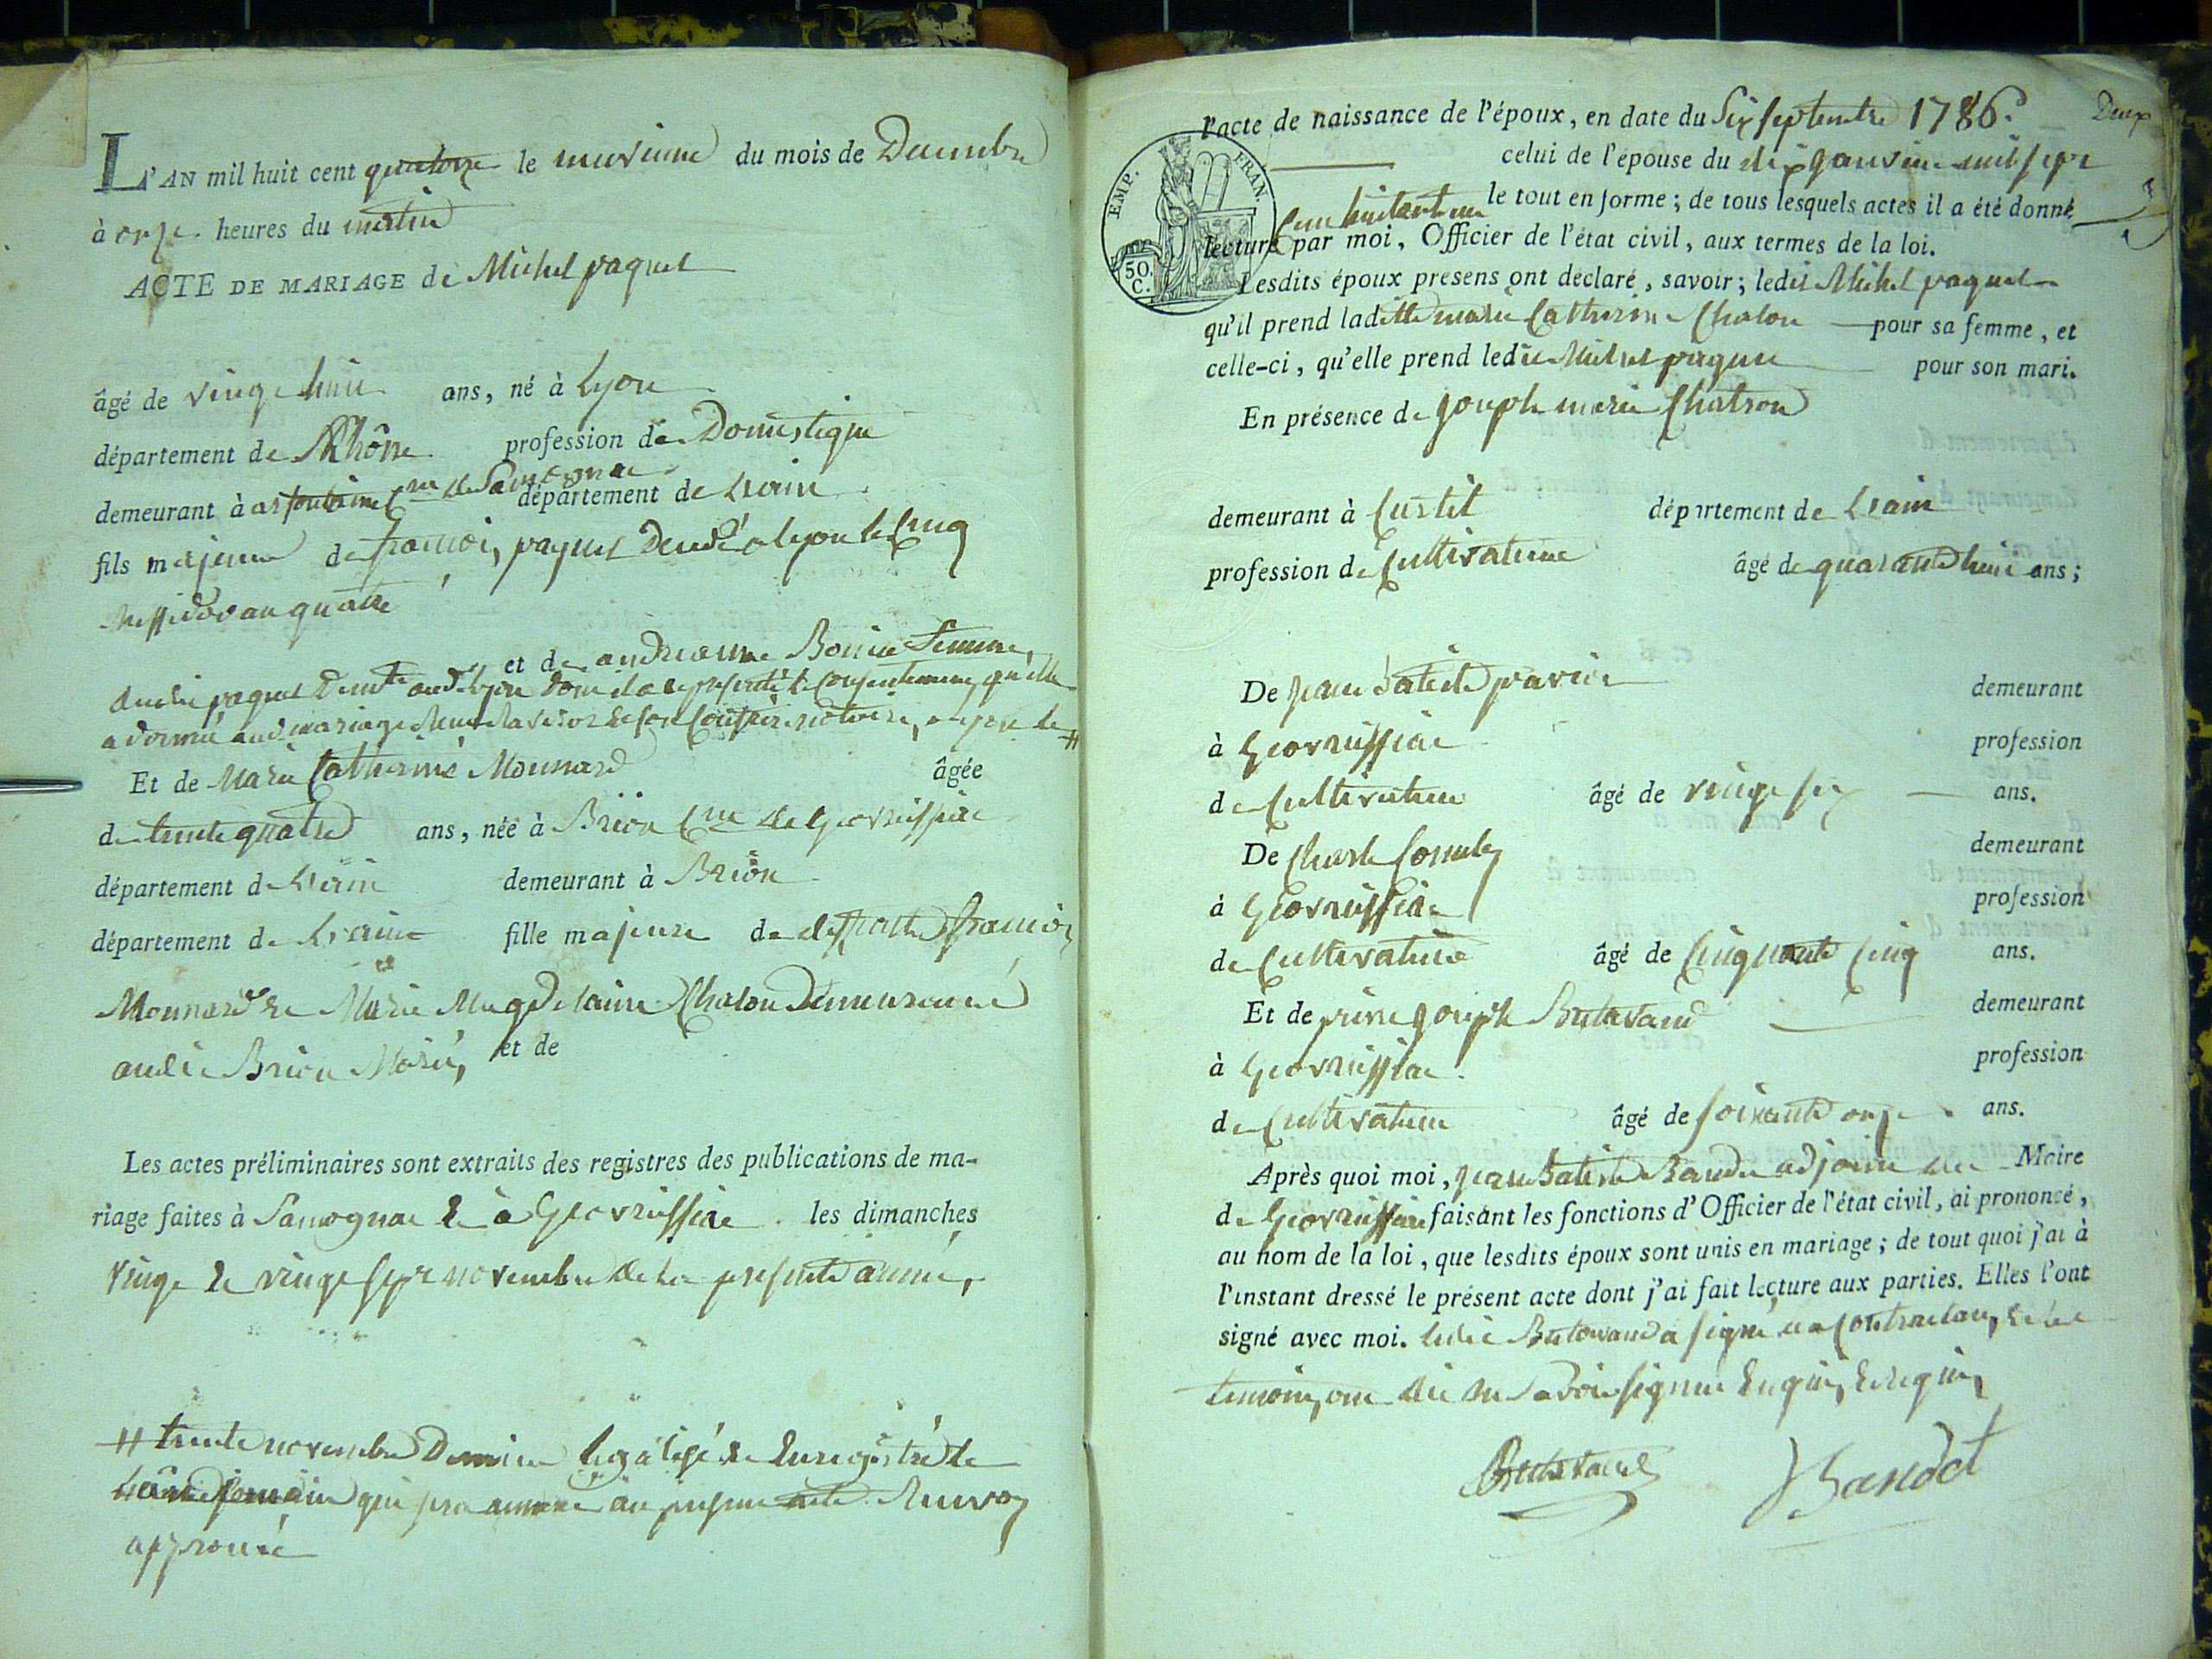 L'AN mil huit cent quatorze le neuvieme du mois de Decembre
à onze heures du matin
ACTE DE MARIAGE de Michel paquet
âgé de vingt huit ans, né à Lyon
département de Rhône profession de Domestique
demeurant à arfontaine Cne de Samognat département de Lain
fils majeur de francois paquet Decedé a lyon le Cinq
Messidor an quatre
et de andreanne Bonin femme
dudit paquet Demte audt Lyon dont il a representé le Consentement qu'elle
a donné audt mariage notaire, a lyon le #
Et de Marie Catherine Monnard âgée
de trente quatre ans, née à Brion Cne de Geovreissiac
département de Lain demeurant à Brion
département de Lain fille majeure de deffunt francois
Monnard et Marie Magdelaine Chalon Demeurant
audit Brion Mariés et de
Les actes préliminaires sont extraits des registres des publications de ma-
riage faites à Samognat & à Geovreissiac les dimanches
vingt & vingt sept novembre de la presente année,
# trente novembre Dernier legalisé & Enregistré le
qui sera annexé au present acte Renvoy
approuvé
Deux
l'acte de naissance de l'époux, en date du Six septembre 1786.
celui de l'épouse du dix janvier mil sept
Cent huitante un le tout en forme; de tous lesquels actes il a été donné
lecture par moi, Officier de l'état civil, aux termes de la loi.
EMP. FRAN.
50. C.
Lesdits époux presens ont declaré, savoir; ledit Michel paquet
qu'il prend laditte marie Catherine Chalon pour sa femme, et
celle-ci, qu'elle prend ledit Michel paquet pour son mari.
En présence de Joseph marie Chatron
demeurant à Curtil département de Lain
profession de Cultivateur âgé de quarante huit ans;
De Jean Batiste pavier demeurant
à Geovreissiac profession
de Cultivateur âgé de vingt six ans.
De Charle demeurant
à Geovreissiac profession
de Cultivateur âgé de Cinquante Cinq ans.
Et de pierre Joseph Butavand demeurant
à Geovreissiac profession
de Cultivateur âgé de soixante onze ans.
Après quoi moi, Jean Batiste Bandet adjoint du Maire
de Geovreissiac faisant les fonctions d'Officier de l'état civil, ai prononcé,
au nom de la loi, que lesdits époux sont unis en mariage; de tout quoi j'ai à
l'instant dressé le présent acte dont j'ai fait lecture aux parties. Elles l'ont
signé avec moi. ledit Butavand a signé les Contractans & les
temoins ont dit ne savoir signer Enquis & requis
Butavand Bandet